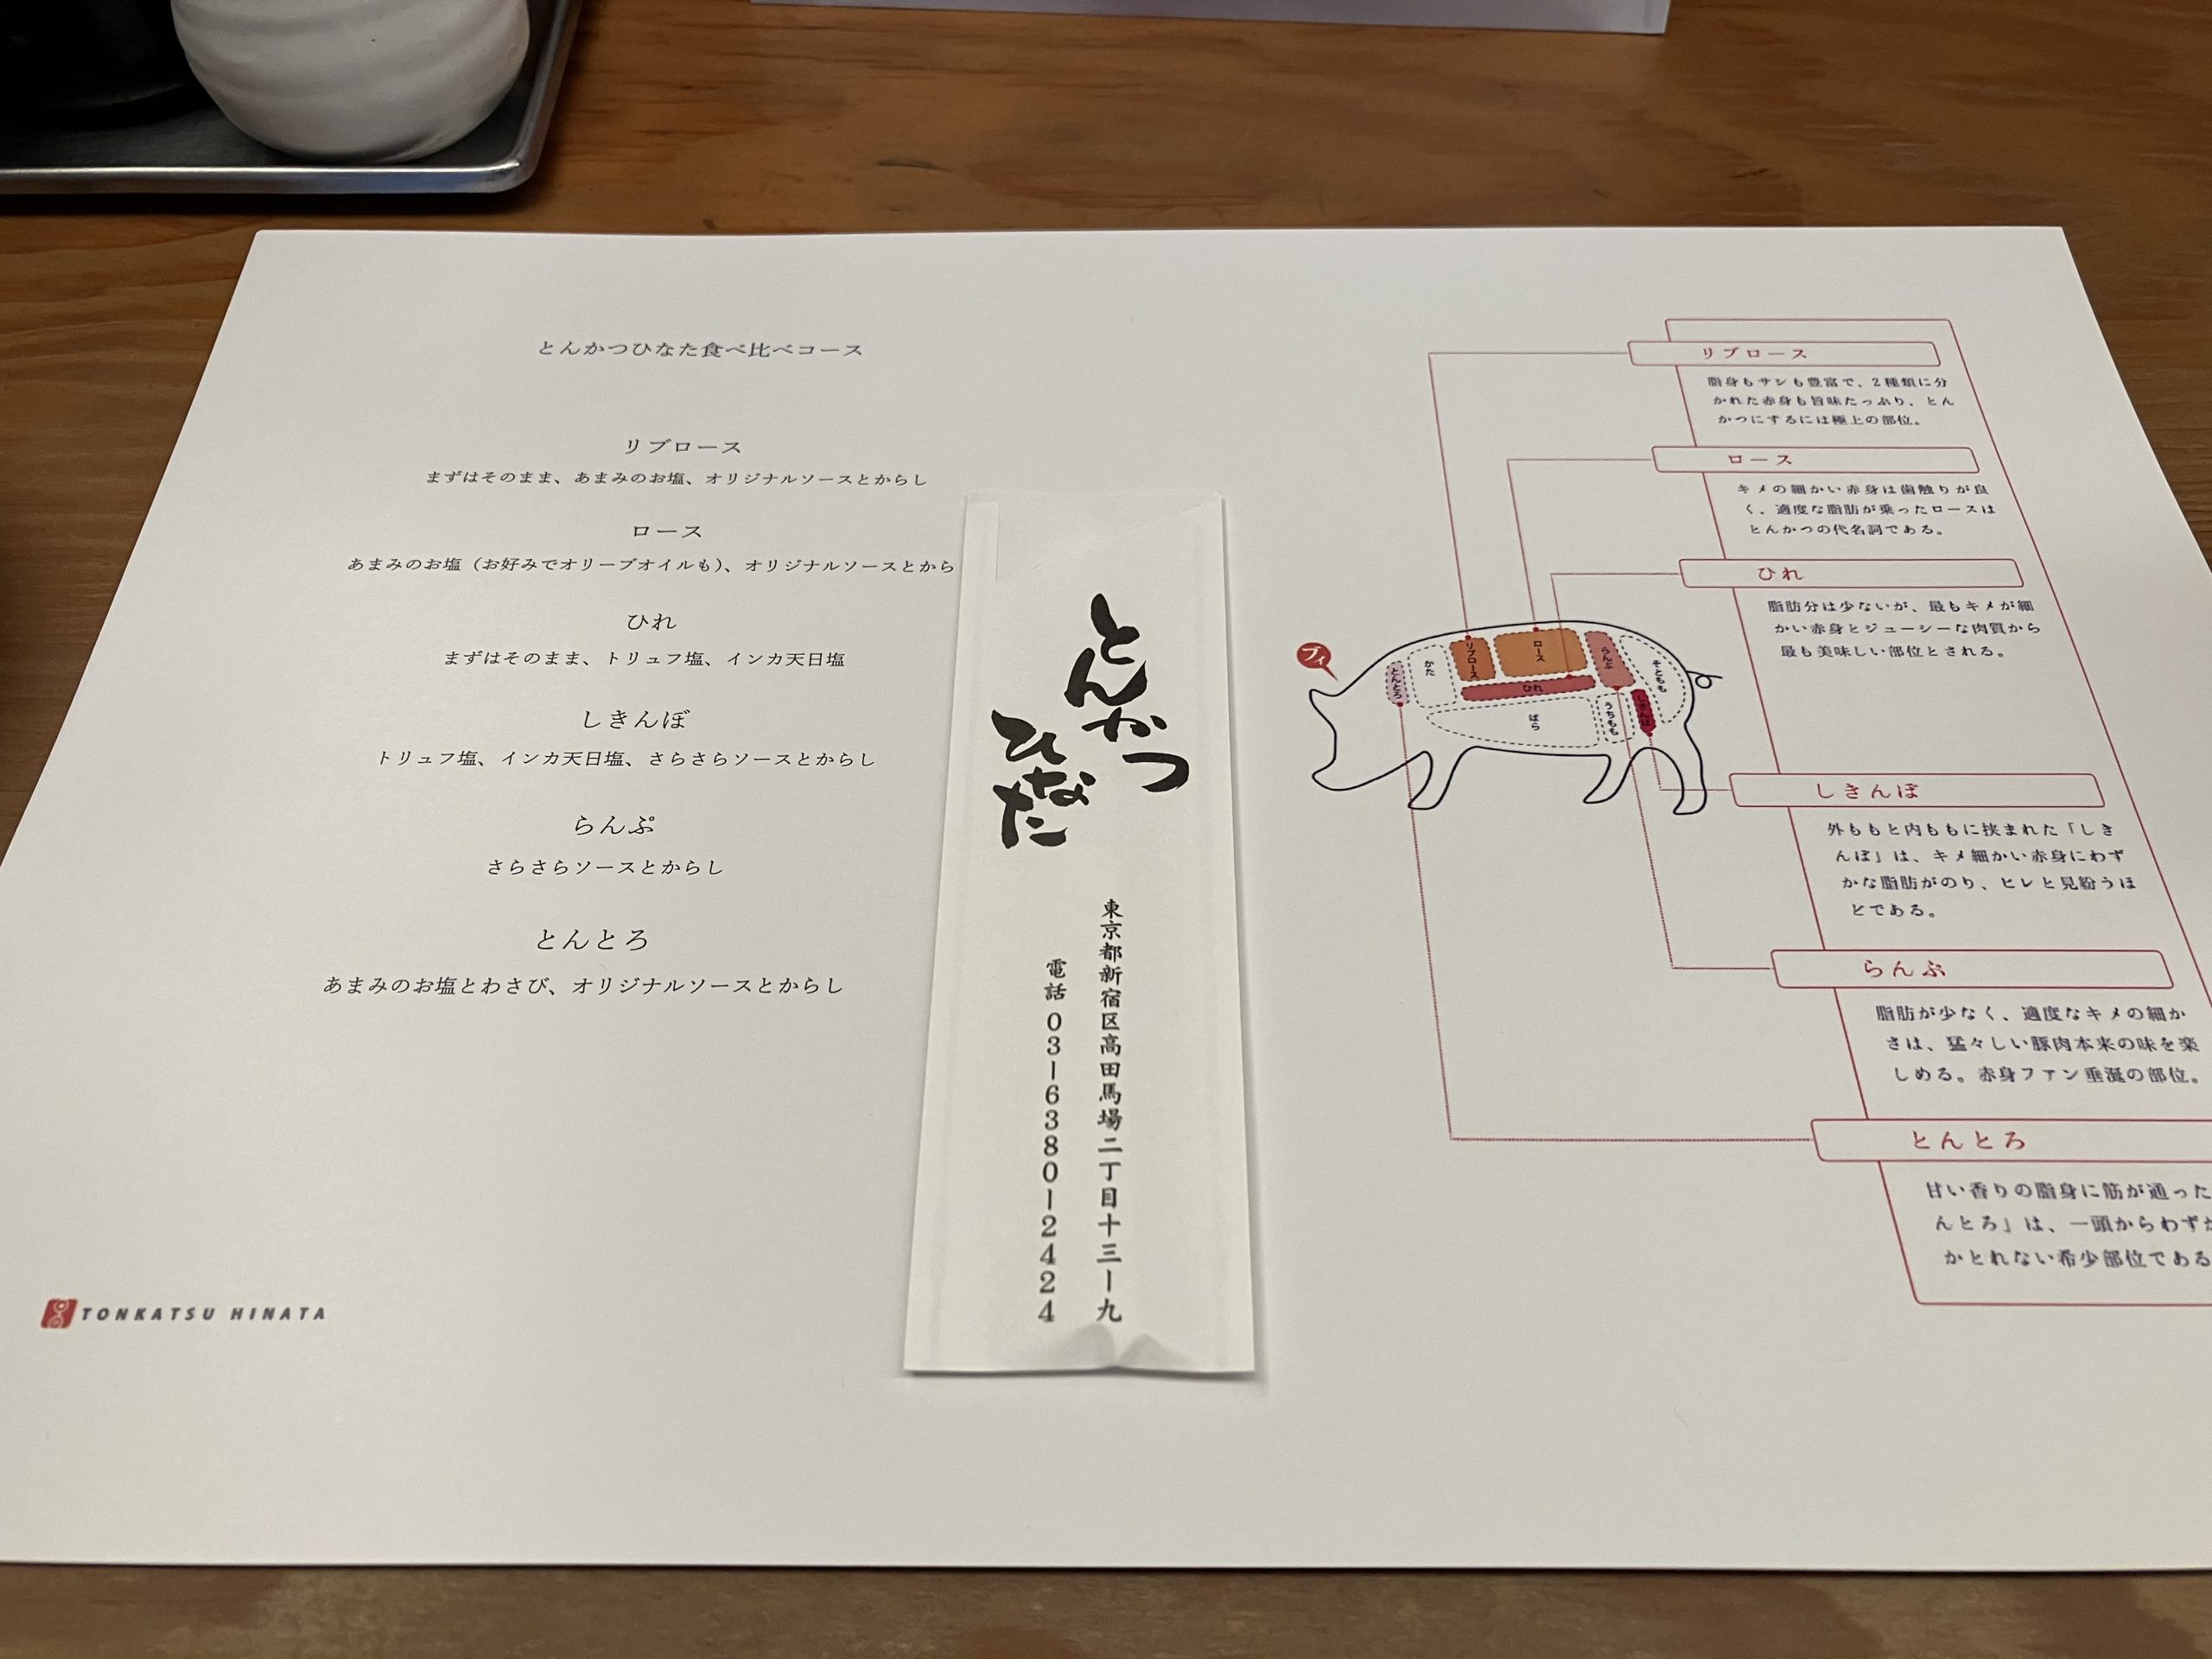 とんかつひなた食べ比べコース
リブロース
まずはそのまま、あまみのお塩、オリジナルソースとからし
ロース
あまみのお塩（お好みでオリーブオイルも）、オリジナルソースとから
ひれ
まずはそのまま、トリュフ塩、インカ天日塩
しきんぼ
トリュフ塩、インカ天日塩、さらさらソースとからし
らんぷ
さらさらソースとからし
とんとろ
あまみのお塩とわさび、オリジナルソースとからし
TONKATSU HINATA
とんかつ
ひなた
東京都新宿区高田馬場二丁目十三ー九
電話 03ー6380ー2424
ブィ
とんとろ
かた
リブロース
ロース
ひれ
らんぷ
そともも
ばら
うちもも
しきんぼ
リブロース
脂身もサシも豊富で、2種類に分
かれた赤身も旨味たっぷり、とん
かつにするには極上の部位。
ロース
キメの細かい赤身は歯触りが良
く、適度な脂肪が乗ったロースは
とんかつの代名詞である。
ひれ
脂肪分は少ないが、最もキメが細
かい赤身とジューシーな肉質から
最も美味しい部位とされる。
しきんぼ
外ももと内ももに挟まれた「しき
んぼ」は、キメ細かい赤身にわず
かな脂肪がのり、ヒレと見紛うほ
どである。
らんぷ
脂肪が少なく、適度なキメの細か
さは、猛々しい豚肉本来の味を楽
しめる。赤身ファン垂涎の部位。
とんとろ
甘い香りの脂身に筋が通った
んとろ」は、一頭からわずか
かとれない希少部位である